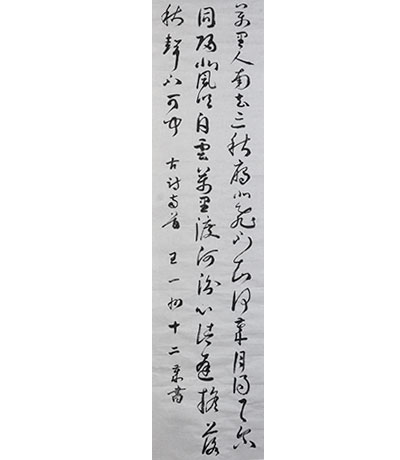 萬里人南去三秋雁北飛不知何歲月得與爾
同歸北風吹白雲萬里渡河汾心緒逢搖落
秋聲不可聞 古詩兩首 王一 十二歲書